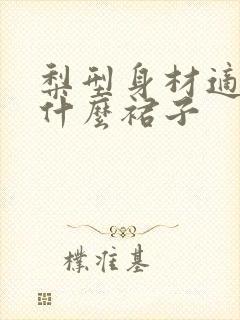 梨型身材適
什麼裙子
樸准基